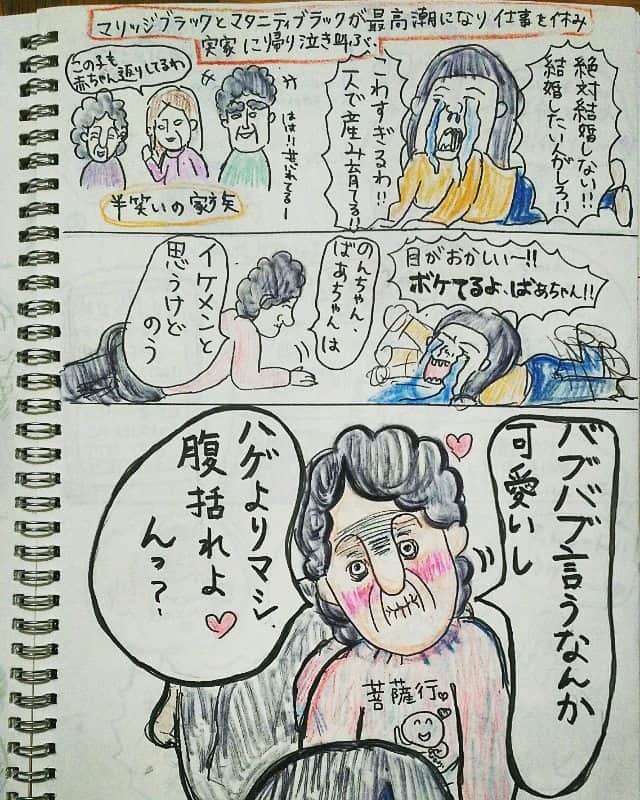 マリッジブラックとマタニティブラックが最高潮になり仕事を休み
実家に帰り泣き叫ぶ、
絶対結婚しない!!
結婚したい人がしろ!!
こわすぎるわ!!
一人で産み育てる!!
この子も
赤ちゃん返りしてるわ
ははは!! 荒れてるー
半笑いの家族
目がおかしい〜!!
ボケてるよ、ばあちゃん!!
のんちゃん、
ばあちゃんは
イケメンと
思うけど
のう
バブバブ言うなんか
可愛いし
ハゲよりマシ、
腹括れよ
んっ?
菩薩行